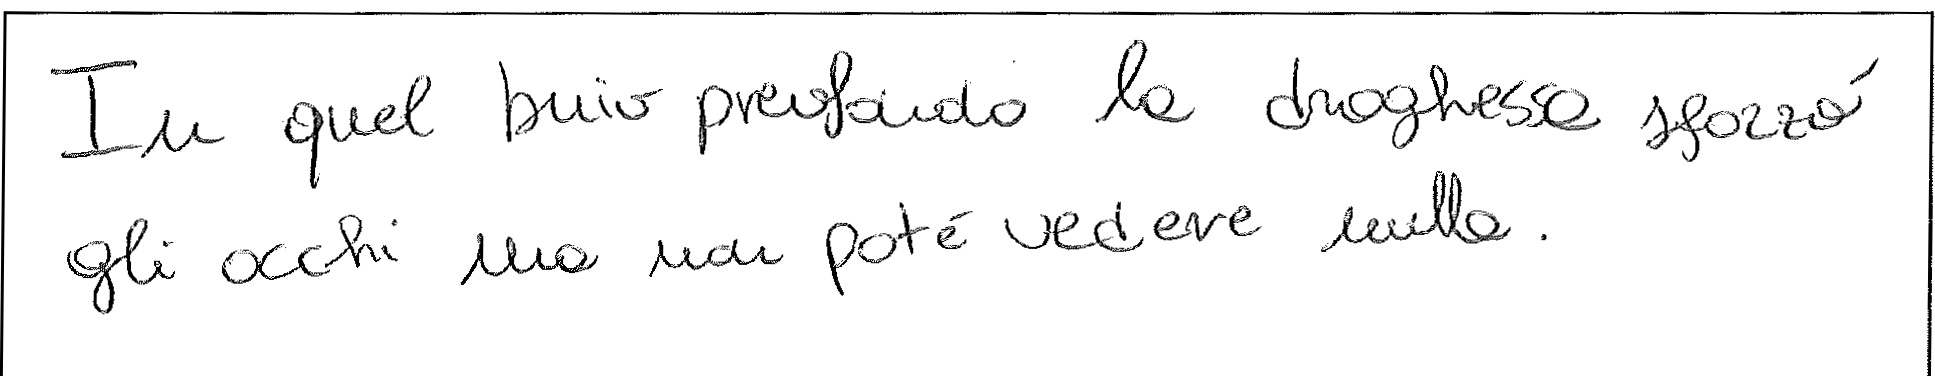 In quel buio profondo la draghessa sforzó
gli occhi ma non poté vedere nulla.